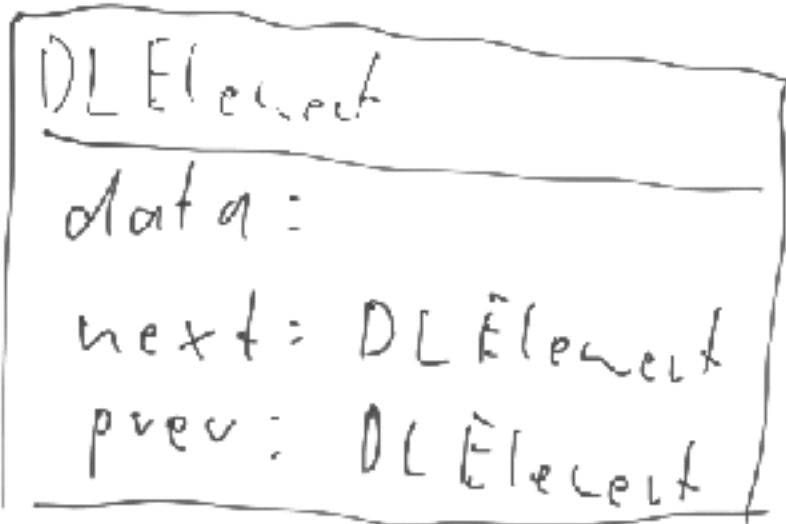 DLElement
data:
next: DLElement
prev: DLElement